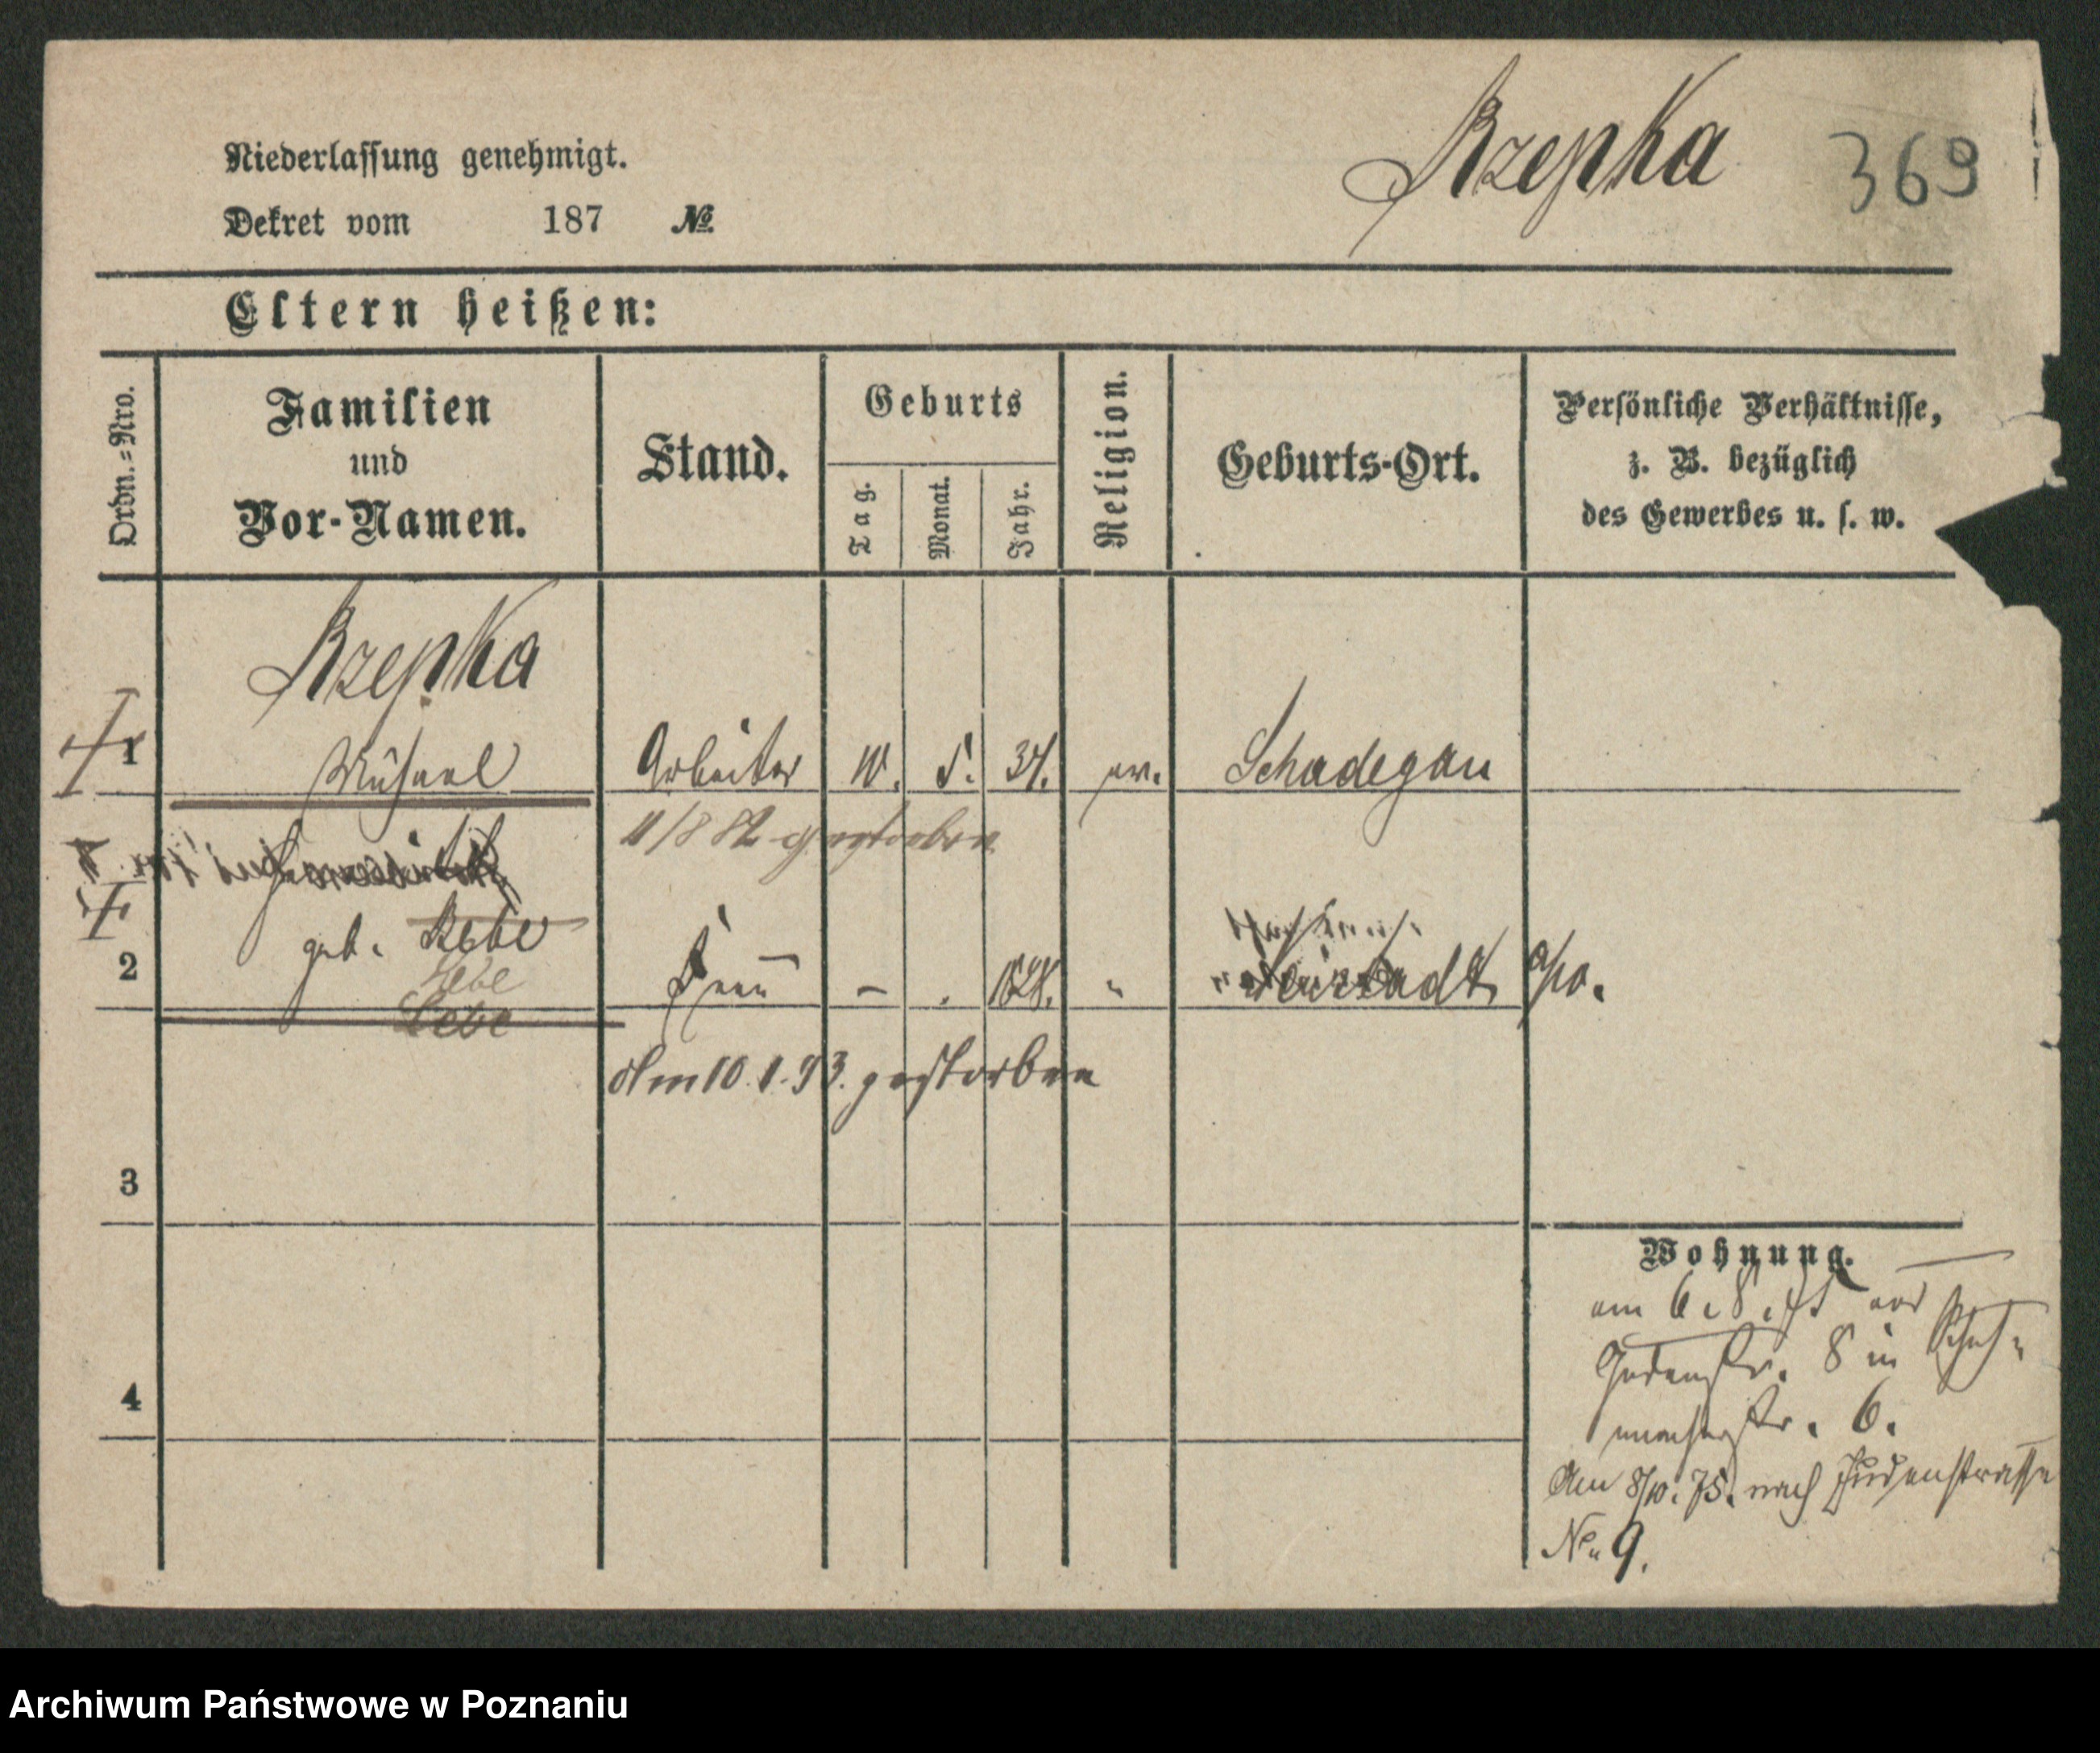 Rzepka 369
Niederlassung genehmigt.
Dekret vom 187 №
Eltern heißen:
Ordn.=Nro.
Familien
und
Vor-Namen.
Stand.
Geburts
Tag.
Monat.
Jahr.
Religion.
Geburts-Ort.
Persönliche Verhältnisse,
z. B. bezüglich
des Gewerbes u. s. w.
Rzepka
1 Michael Arbeiter 10. 5. 34. ev. Schadegau
11/8 82 gestorben
geb. Bebe
2 Frau – . 1828. "
Lebe
Am 10.1.93. gestorben
3
Wohnung.
am 6.8.75 aus
Judenstr. 8 in
str. 6.
4
Am 8/10. 75. nach Judenstrasse
No. 9.
Archiwum Państwowe w Poznaniu